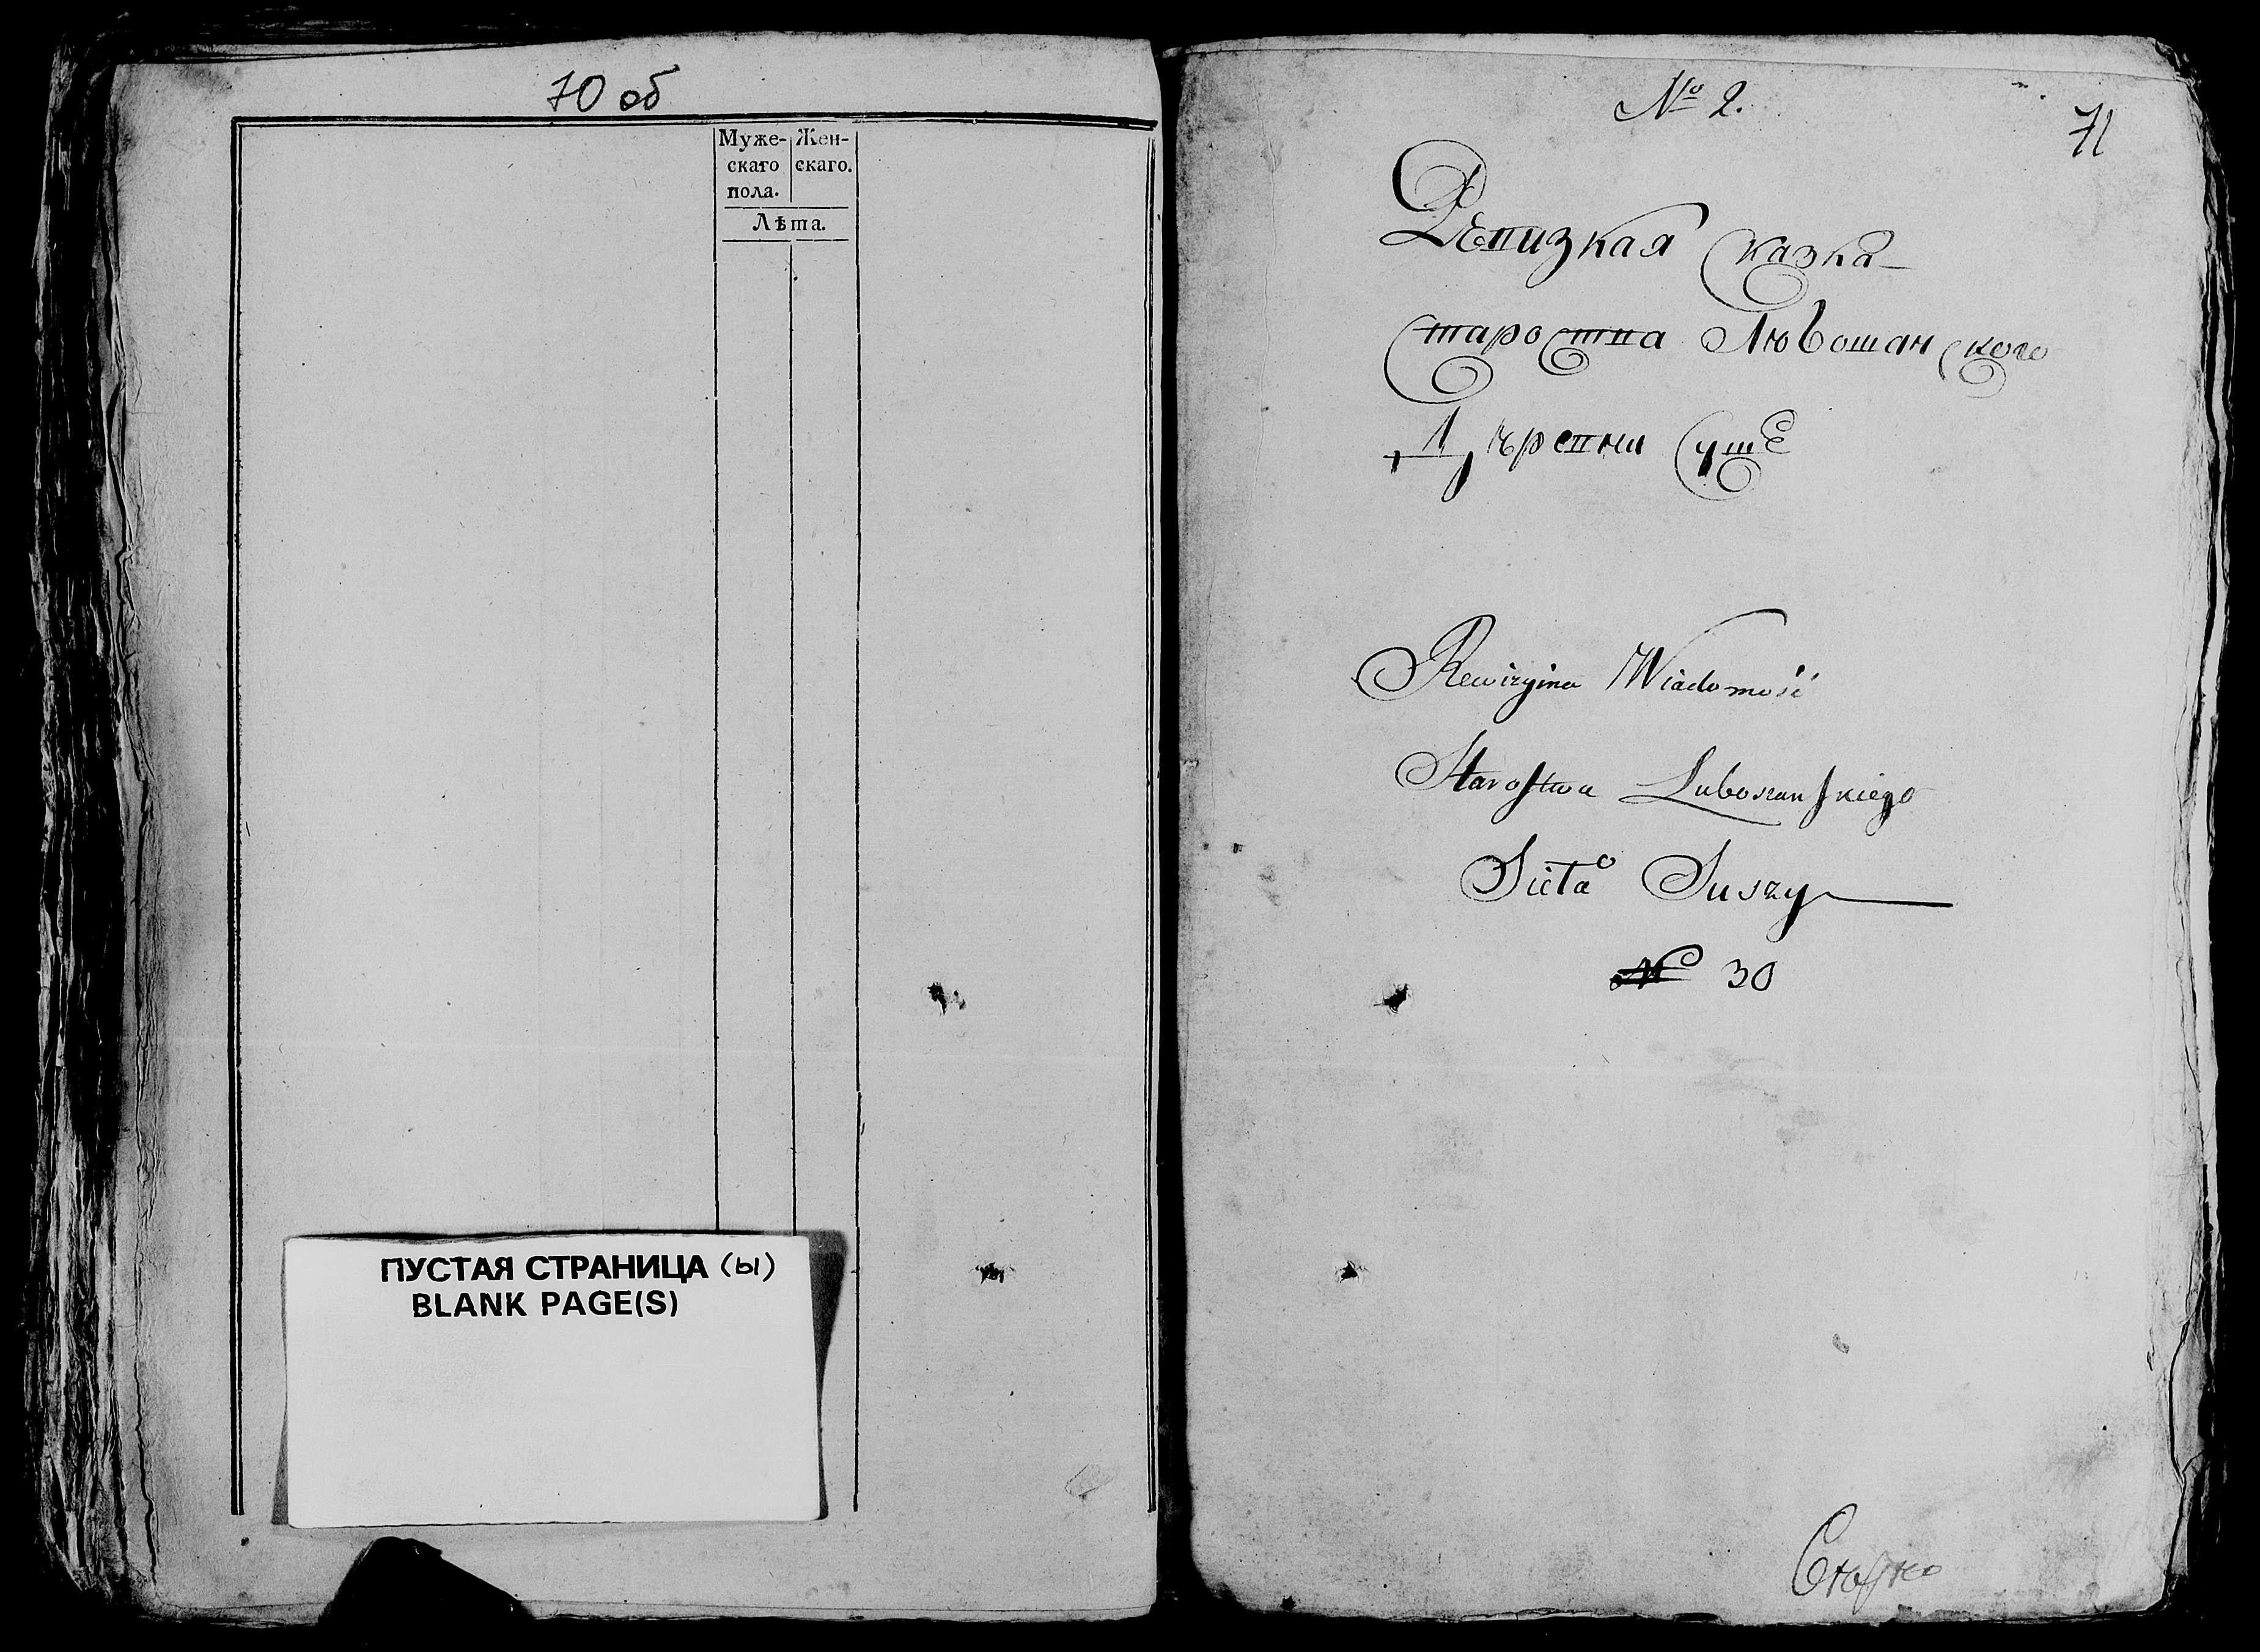 70 об
Муже- Жен-
скаго скаго.
пола.
Лѣта.
ПУСТАЯ СТРАНИЦА (ы)
BLANK PAGE(S)
№ 2.
71
Ревизкая Сказка
Староства Любошанского
Дѣревни Сушѣ
Rewizyina Wiadomość
Starostwa Luboszanskiego
Sieła Suszy
№ 30